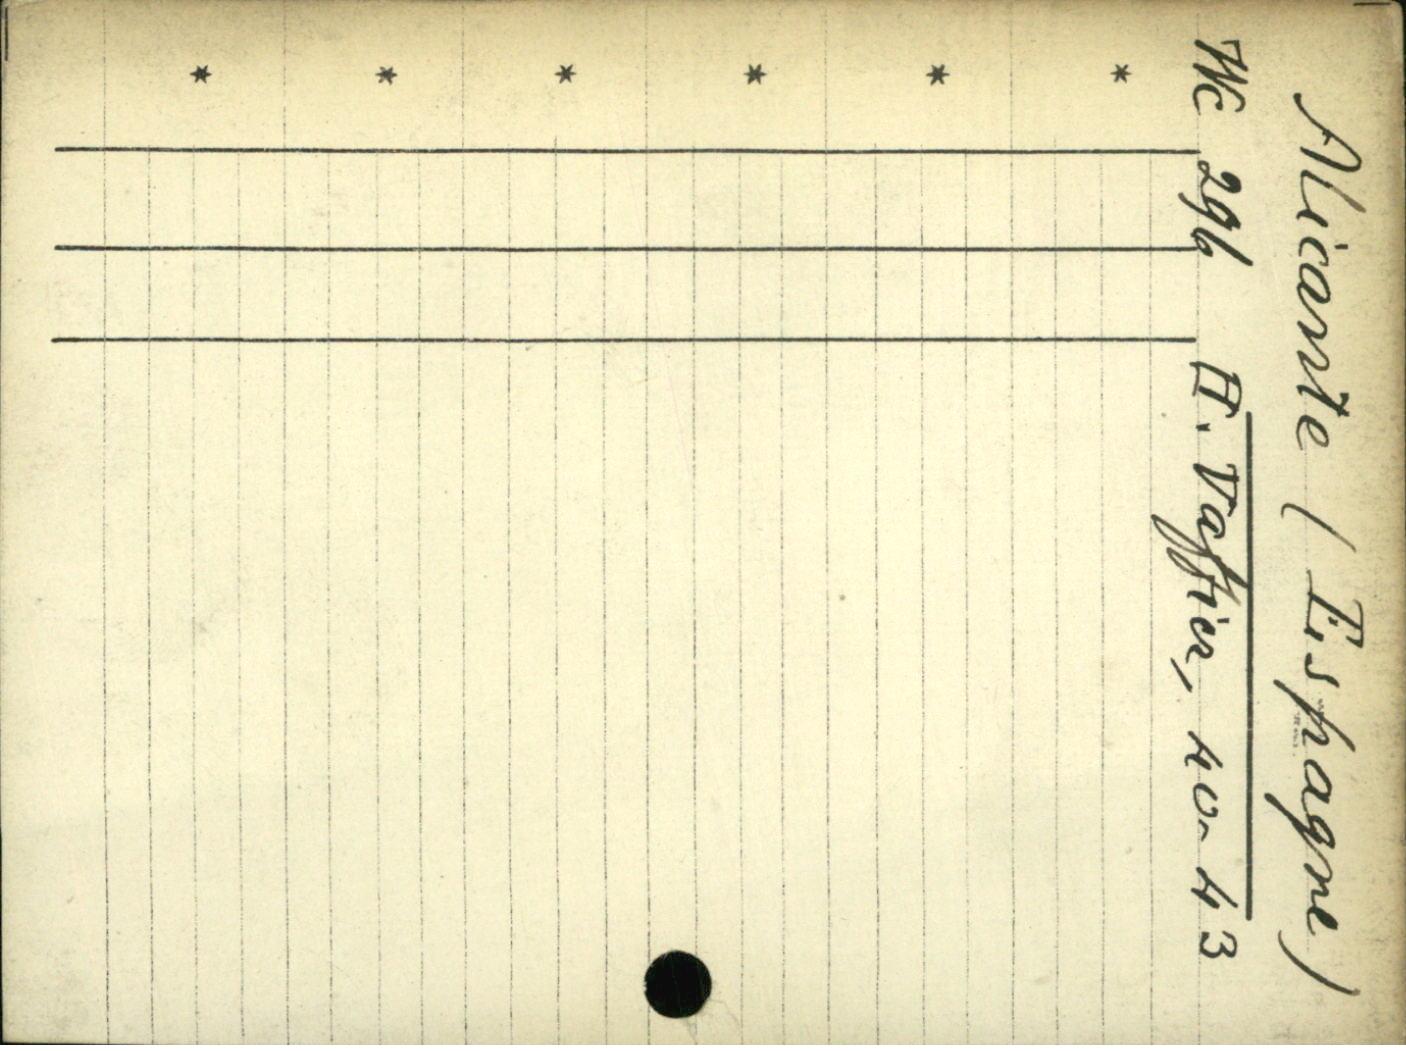 Alicante (Espagne)
Wc 296 H. Vaffier, 40-43
*
*
*
*
*
*